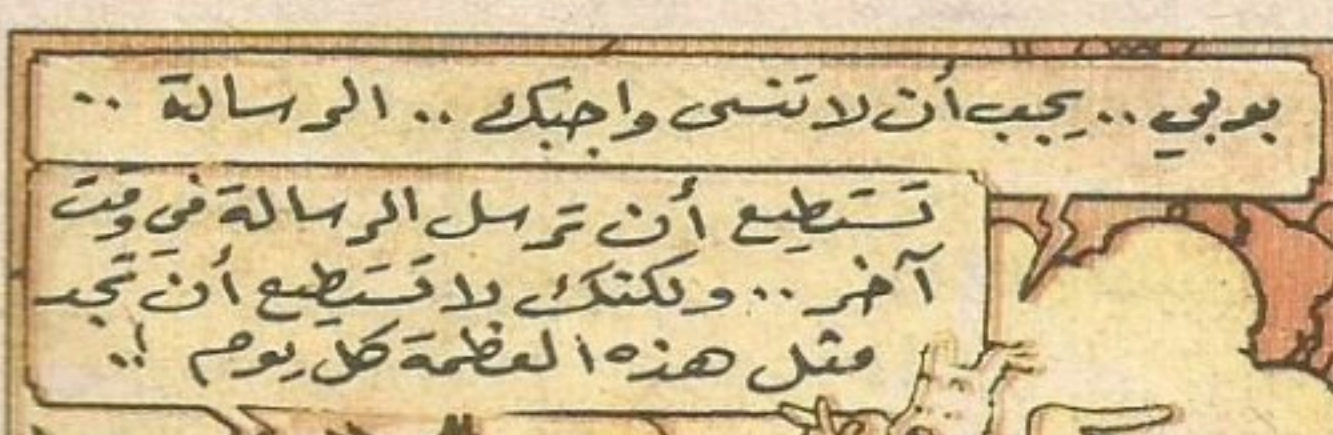 بوبي .. يجب أن لا تنسى واجبك .. الرسالة ..
تستطيع أن ترسل الرسالة في وقت
آخر .. ولكنك لا تستطيع أن تجد
مثل هذه العظمة كل يوم !..